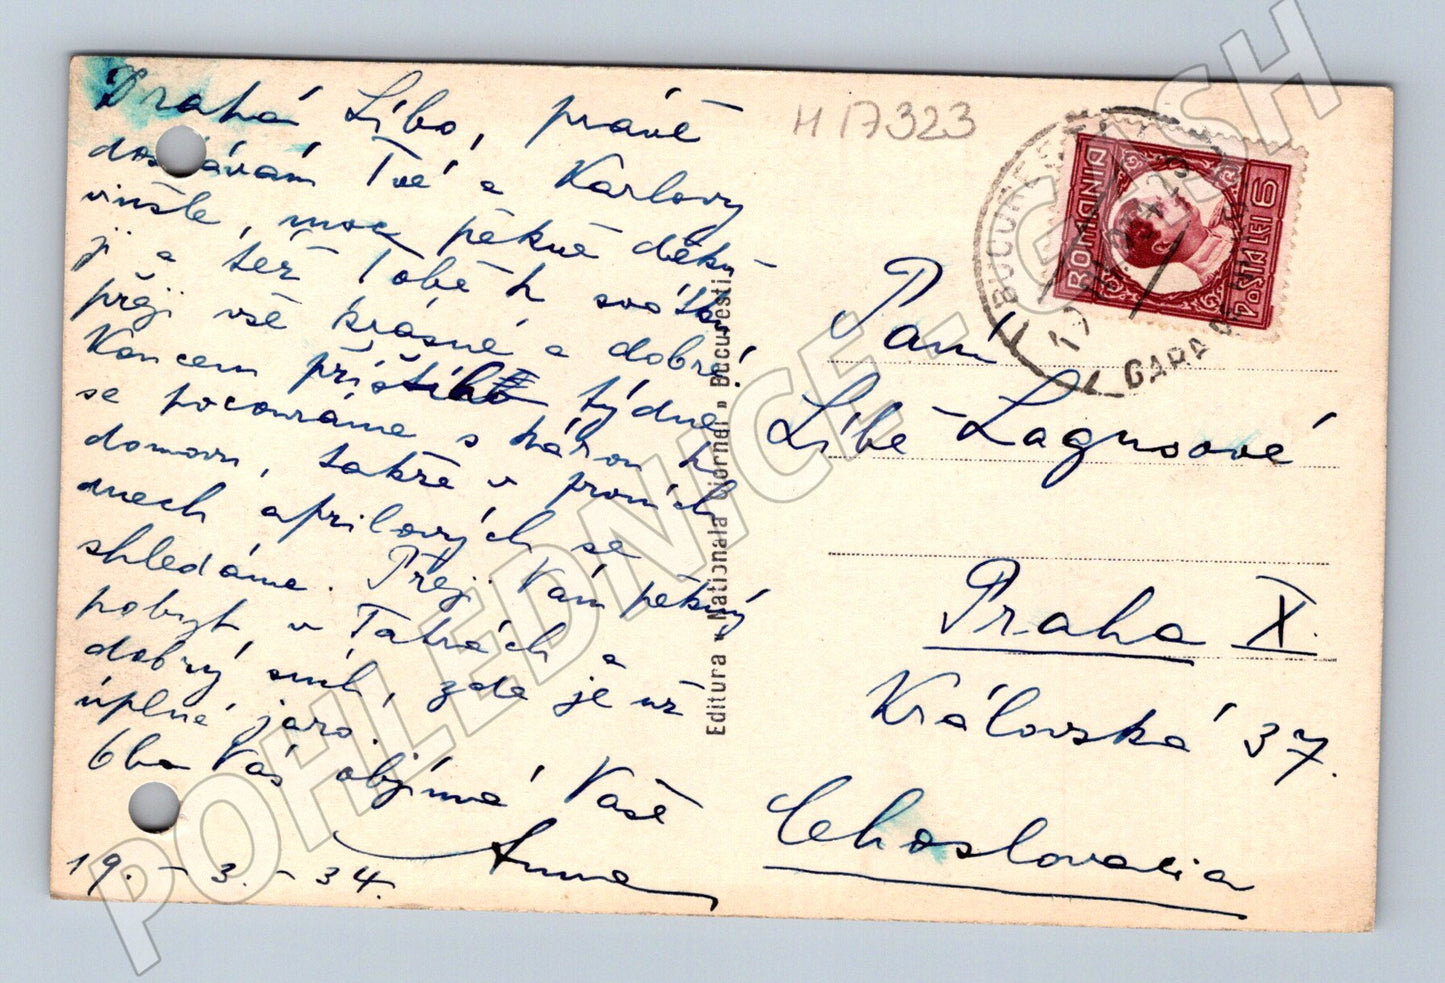 Drahá Líbo, právě
dostávám Tvé a Karlovy
vinše, moc pěkně děku-
ji a též Tobě k svátku
přeji vše krásné a dobré.
Koncem příštího týdne
se pocouráme s
domovu, takže v prvních
dnech aprilových se
shledáme. Přeji Vám pěkný
pobyt v Tatrách a
dobrý sníh, zde je už
úplné jaro.
Oba Vás objímá Vaše
Anna
19. - 3. - 34.
H 17323
Editura « Nationala Ciornei » Bucuresti
ROMANIA
POSTA LEI 6
BUCURESTI
GARA
Paní
Líbě Lagusové
Praha X.
Královská 37.
Cehoslovacia
POHLEDNICE - GASH